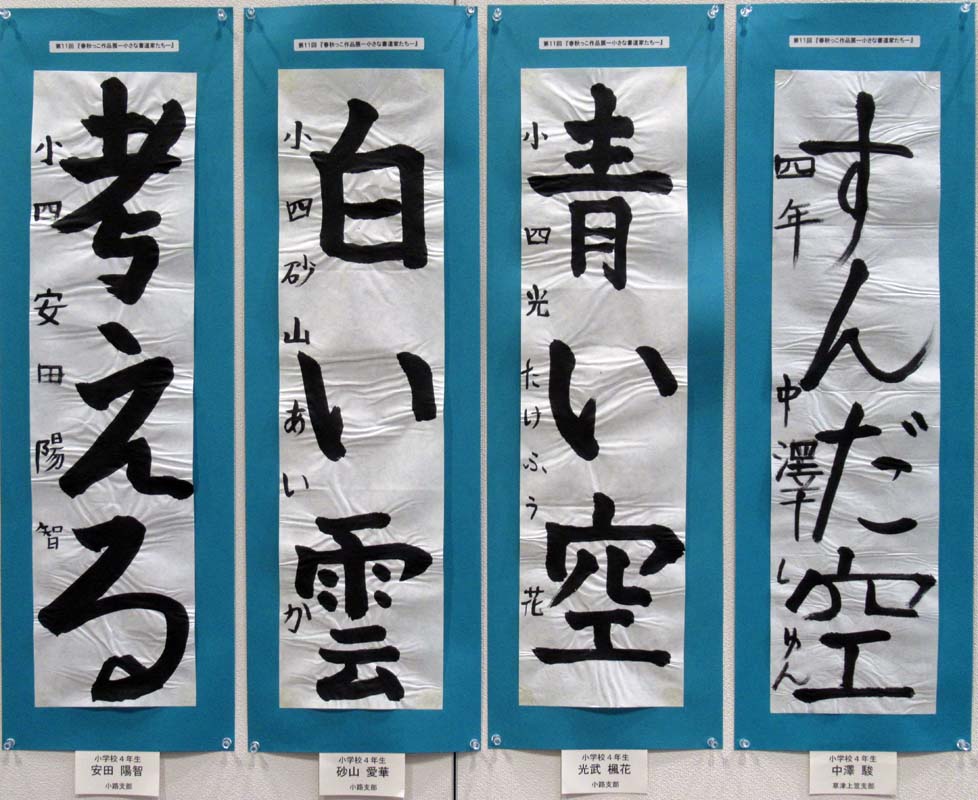 第11回 『春秋っこ作品展―小さな書道家たち―』
考える
小四 安田陽智
小学校4年生
安田 陽智
小路支部
第11回 『春秋っこ作品展―小さな書道家たち―』
白い雲
小四 砂山あいか
小学校4年生
砂山 愛華
小路支部
第11回 『春秋っこ作品展―小さな書道家たち―』
青い空
小四 光たけふう花
小学校4年生
光武 楓花
小路支部
第11回 『春秋っこ作品展―小さな書道家たち―』
すんだ空
四年 中澤しゅん
小学校4年生
中澤 駿
草津上笠支部